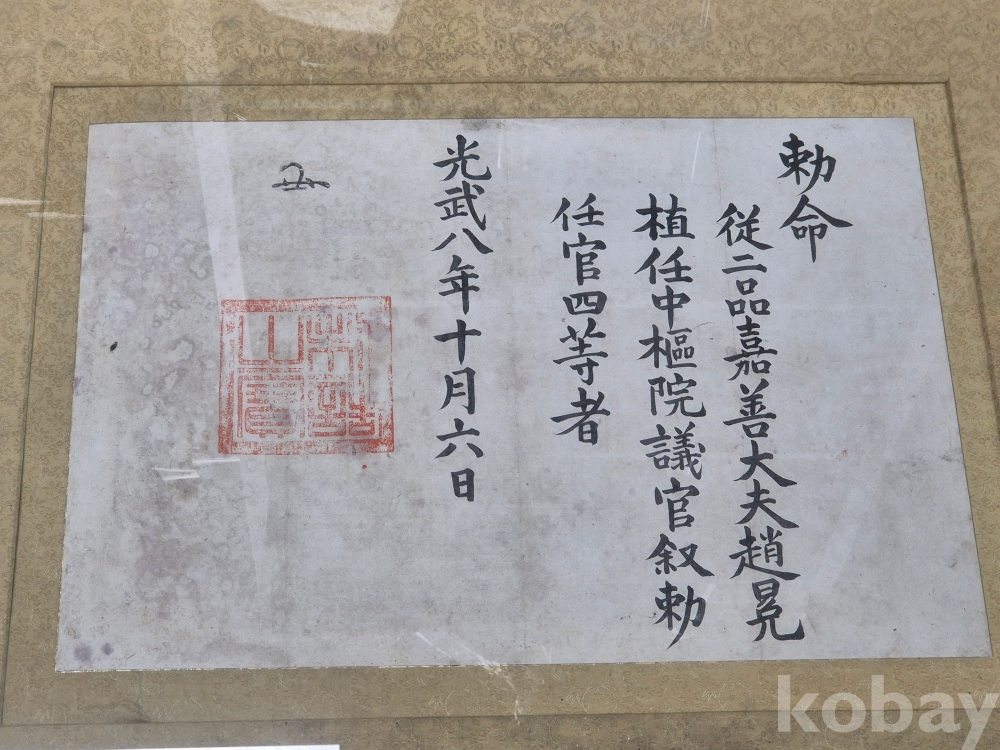 勅命
従二品嘉善大夫趙晃
植任中樞院議官叙勅
任官四等者
光武八年十月六日
kobay